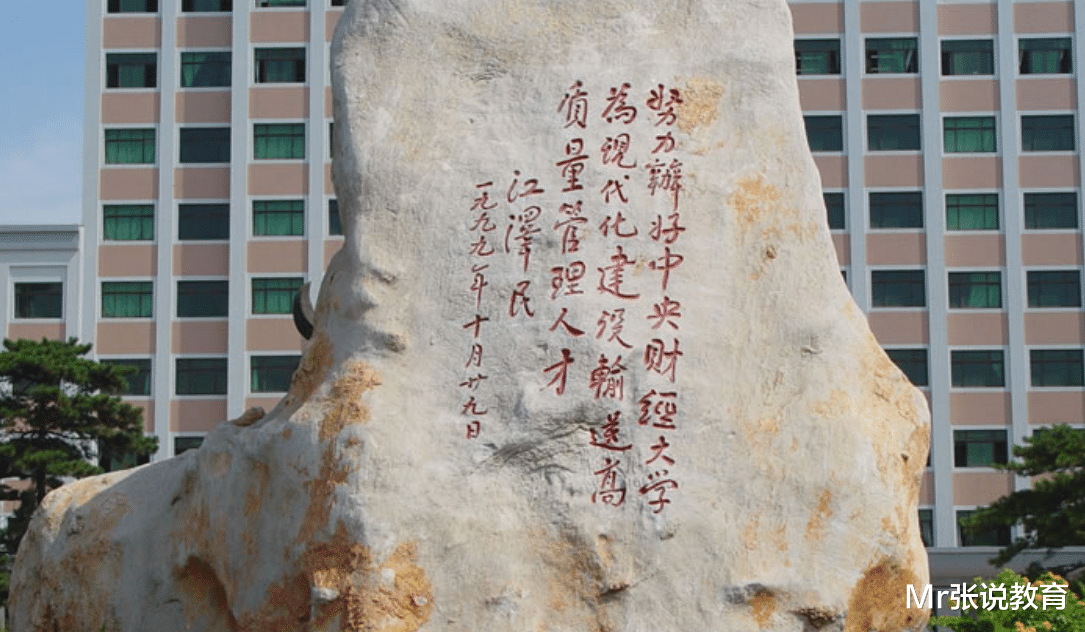 努力辦好中央财經大学
為現代化建设輸送高
质量管理人才
江澤民
一九九九年十月廿九日
Mr张说教育